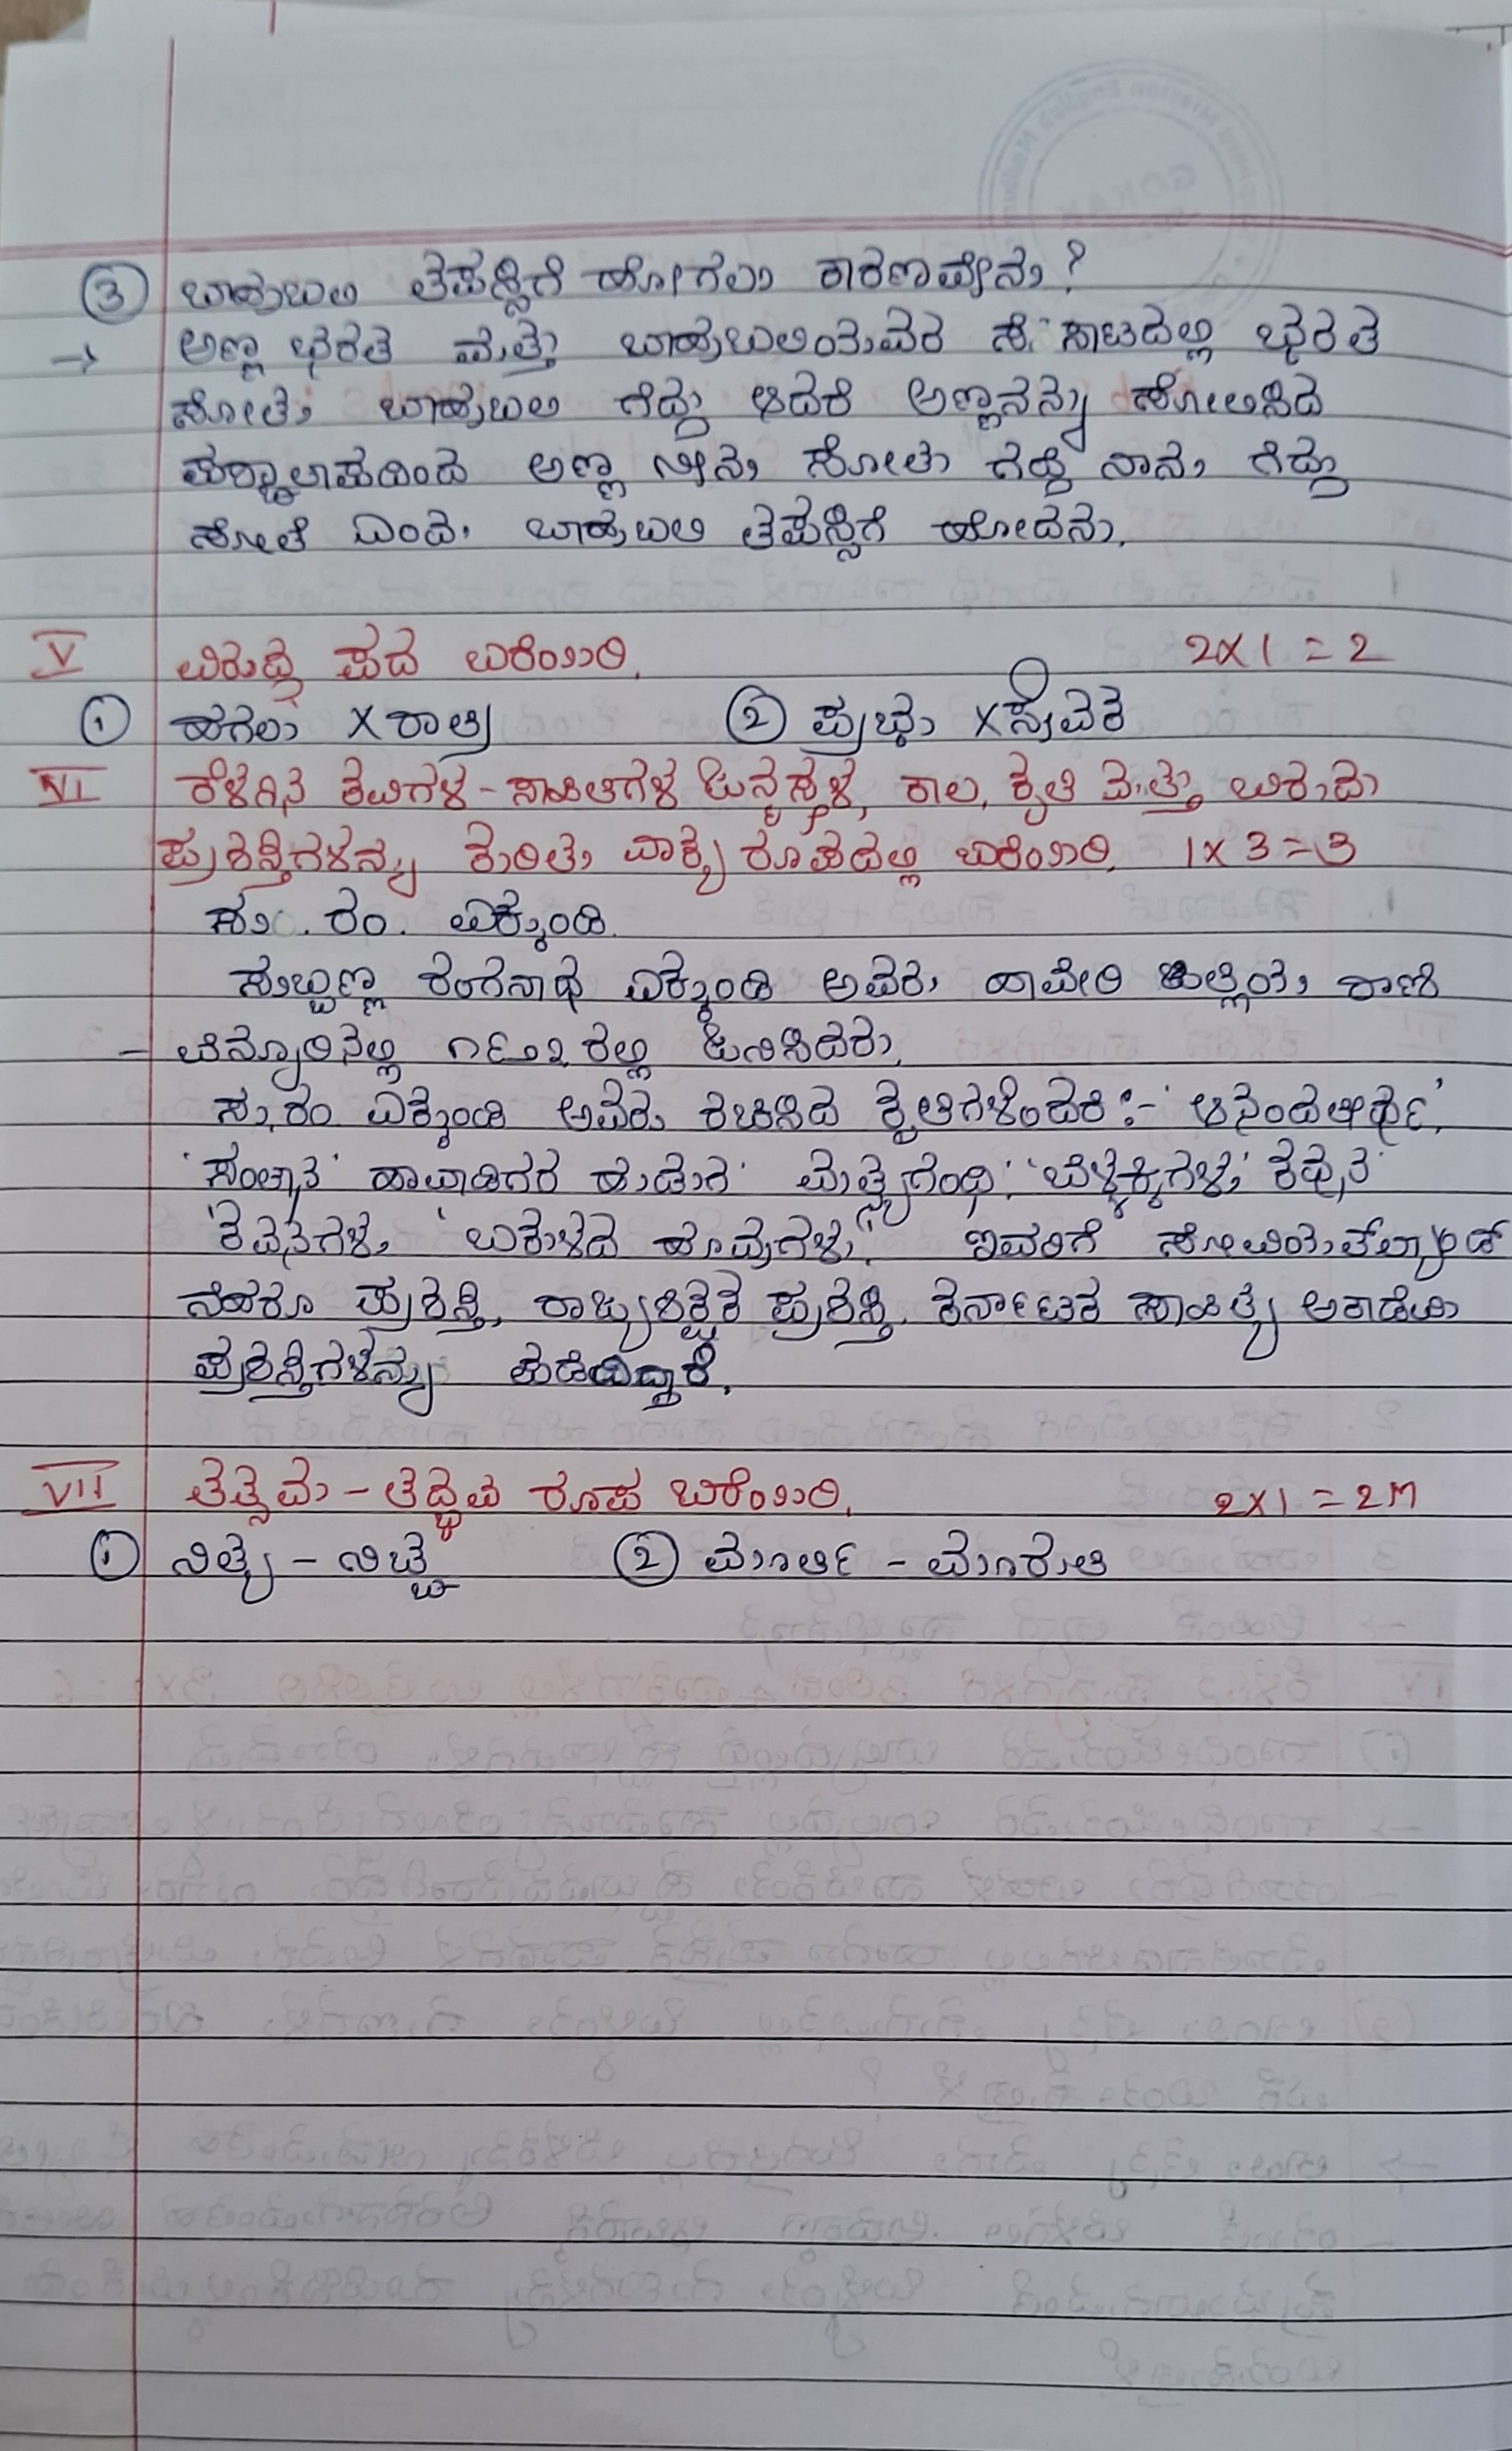 ③ ಬಾಹುಬಲಿ ತಪಸ್ಸಿಗೆ ಹೋಗಲು ಕಾರಣವೇನು?
→ ಅಣ್ಣ ಭರತ ಮತ್ತು ಬಾಹುಬಲಿಯವರ ಸೆಣಸಾಟದಲ್ಲಿ ಭರತ
ಸೋತು ಬಾಹುಬಲಿ ಗೆದ್ದು ಆದರೆ ಅಣ್ಣನನ್ನು ಸೋಲಿಸಿದ
ಪಶ್ಚಾತಾಪದಿಂದ ಅಣ್ಣ ನೀನು ಸೋತು ಗೆದ್ದೆ ನಾನು ಗೆದ್ದು
ಸೋತೆ ಎಂದು ಬಾಹುಬಲಿ ತಪಸ್ಸಿಗೆ ಹೋದನು.
V ವಿರುದ್ಧ ಪದ ಬರೆಯಿರಿ. 2X1=2
① ಹಗಲು X ರಾತ್ರಿ ② ಪ್ರಭು X ಸೇವಕ
VI ಕೆಳಗಿನ ಕವಿಗಳ-ಸಾಹಿತಿಗಳ ಜನ್ಮಸ್ಥಳ, ಕಾಲ, ಕೃತಿ ಮತ್ತು ಬಿರುದು
ಪ್ರಶಸ್ತಿಗಳನ್ನು ಕುರಿತು ವಾಕ್ಯ ರೂಪದಲ್ಲಿ ಬರೆಯಿರಿ. 1X3=3
ಸು. ರಂ. ಎಕ್ಕುಂಡಿ.
ಸುಬ್ಬಣ್ಣ ರಂಗನಾಥ ಎಕ್ಕುಂಡಿ ಅವರು ಹಾವೇರಿ ಜಿಲ್ಲೆಯ ರಾಣೆ
- ಬೆನ್ನೂರಿನಲ್ಲಿ ೧೯೨೩ ರಲ್ಲಿ ಜನಿಸಿದರು.
ಸು.ರಂ ಎಕ್ಕುಂಡಿ ಅವರು ರಚಿಸಿದ ಕೃತಿಗಳೆಂದರೆ:- 'ಆನಂದತೀರ್ಥ',
'ಸಂತಾನ' ಹಾವಾಡಿಗರ ಹುಡುಗ' ಮತ್ಸ್ಯಗಂಧಿ,' 'ಬೆಳ್ಳಕ್ಕಿಗಳು,' ಕಥನ
'ಕವನಗಳು, 'ಬಕುಳದ ಹೂವುಗಳು.' ಇವರಿಗೆ ಸೋವಿಯತ್‌ಲ್ಯಾಂಡ್
ನೆಹರೂ ಪ್ರಶಸ್ತಿ, ರಾಜ್ಯಶಿಕ್ಷಕ ಪ್ರಶಸ್ತಿ. ಕರ್ನಾಟಕ ಸಾಹಿತ್ಯ ಅಕಾಡೆಮಿ
ಪ್ರಶಸ್ತಿಗಳನ್ನು ಪಡೆದಿದ್ದಾರೆ.
VII ತತ್ಸಮ-ತದ್ಭವ ರೂಪ ಬರೆಯಿರಿ. 2X1=2M
① ನಿತ್ಯ - ನಿಚ್ಚ ② ಮೂರ್ತಿ - ಮೂರುತಿ